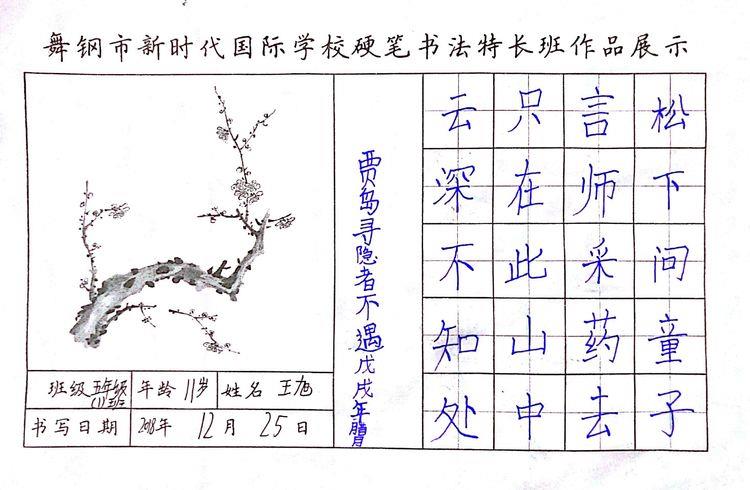 舞钢市新时代国际学校硬笔书法特长班作品展示
松下问童子
言师采药去
只在此山中
云深不知处
贾岛寻隐者不遇戊戌年
班级 五年级(1)班 年龄 11岁 姓名 王旭
书写日期 2018年 12月 25日